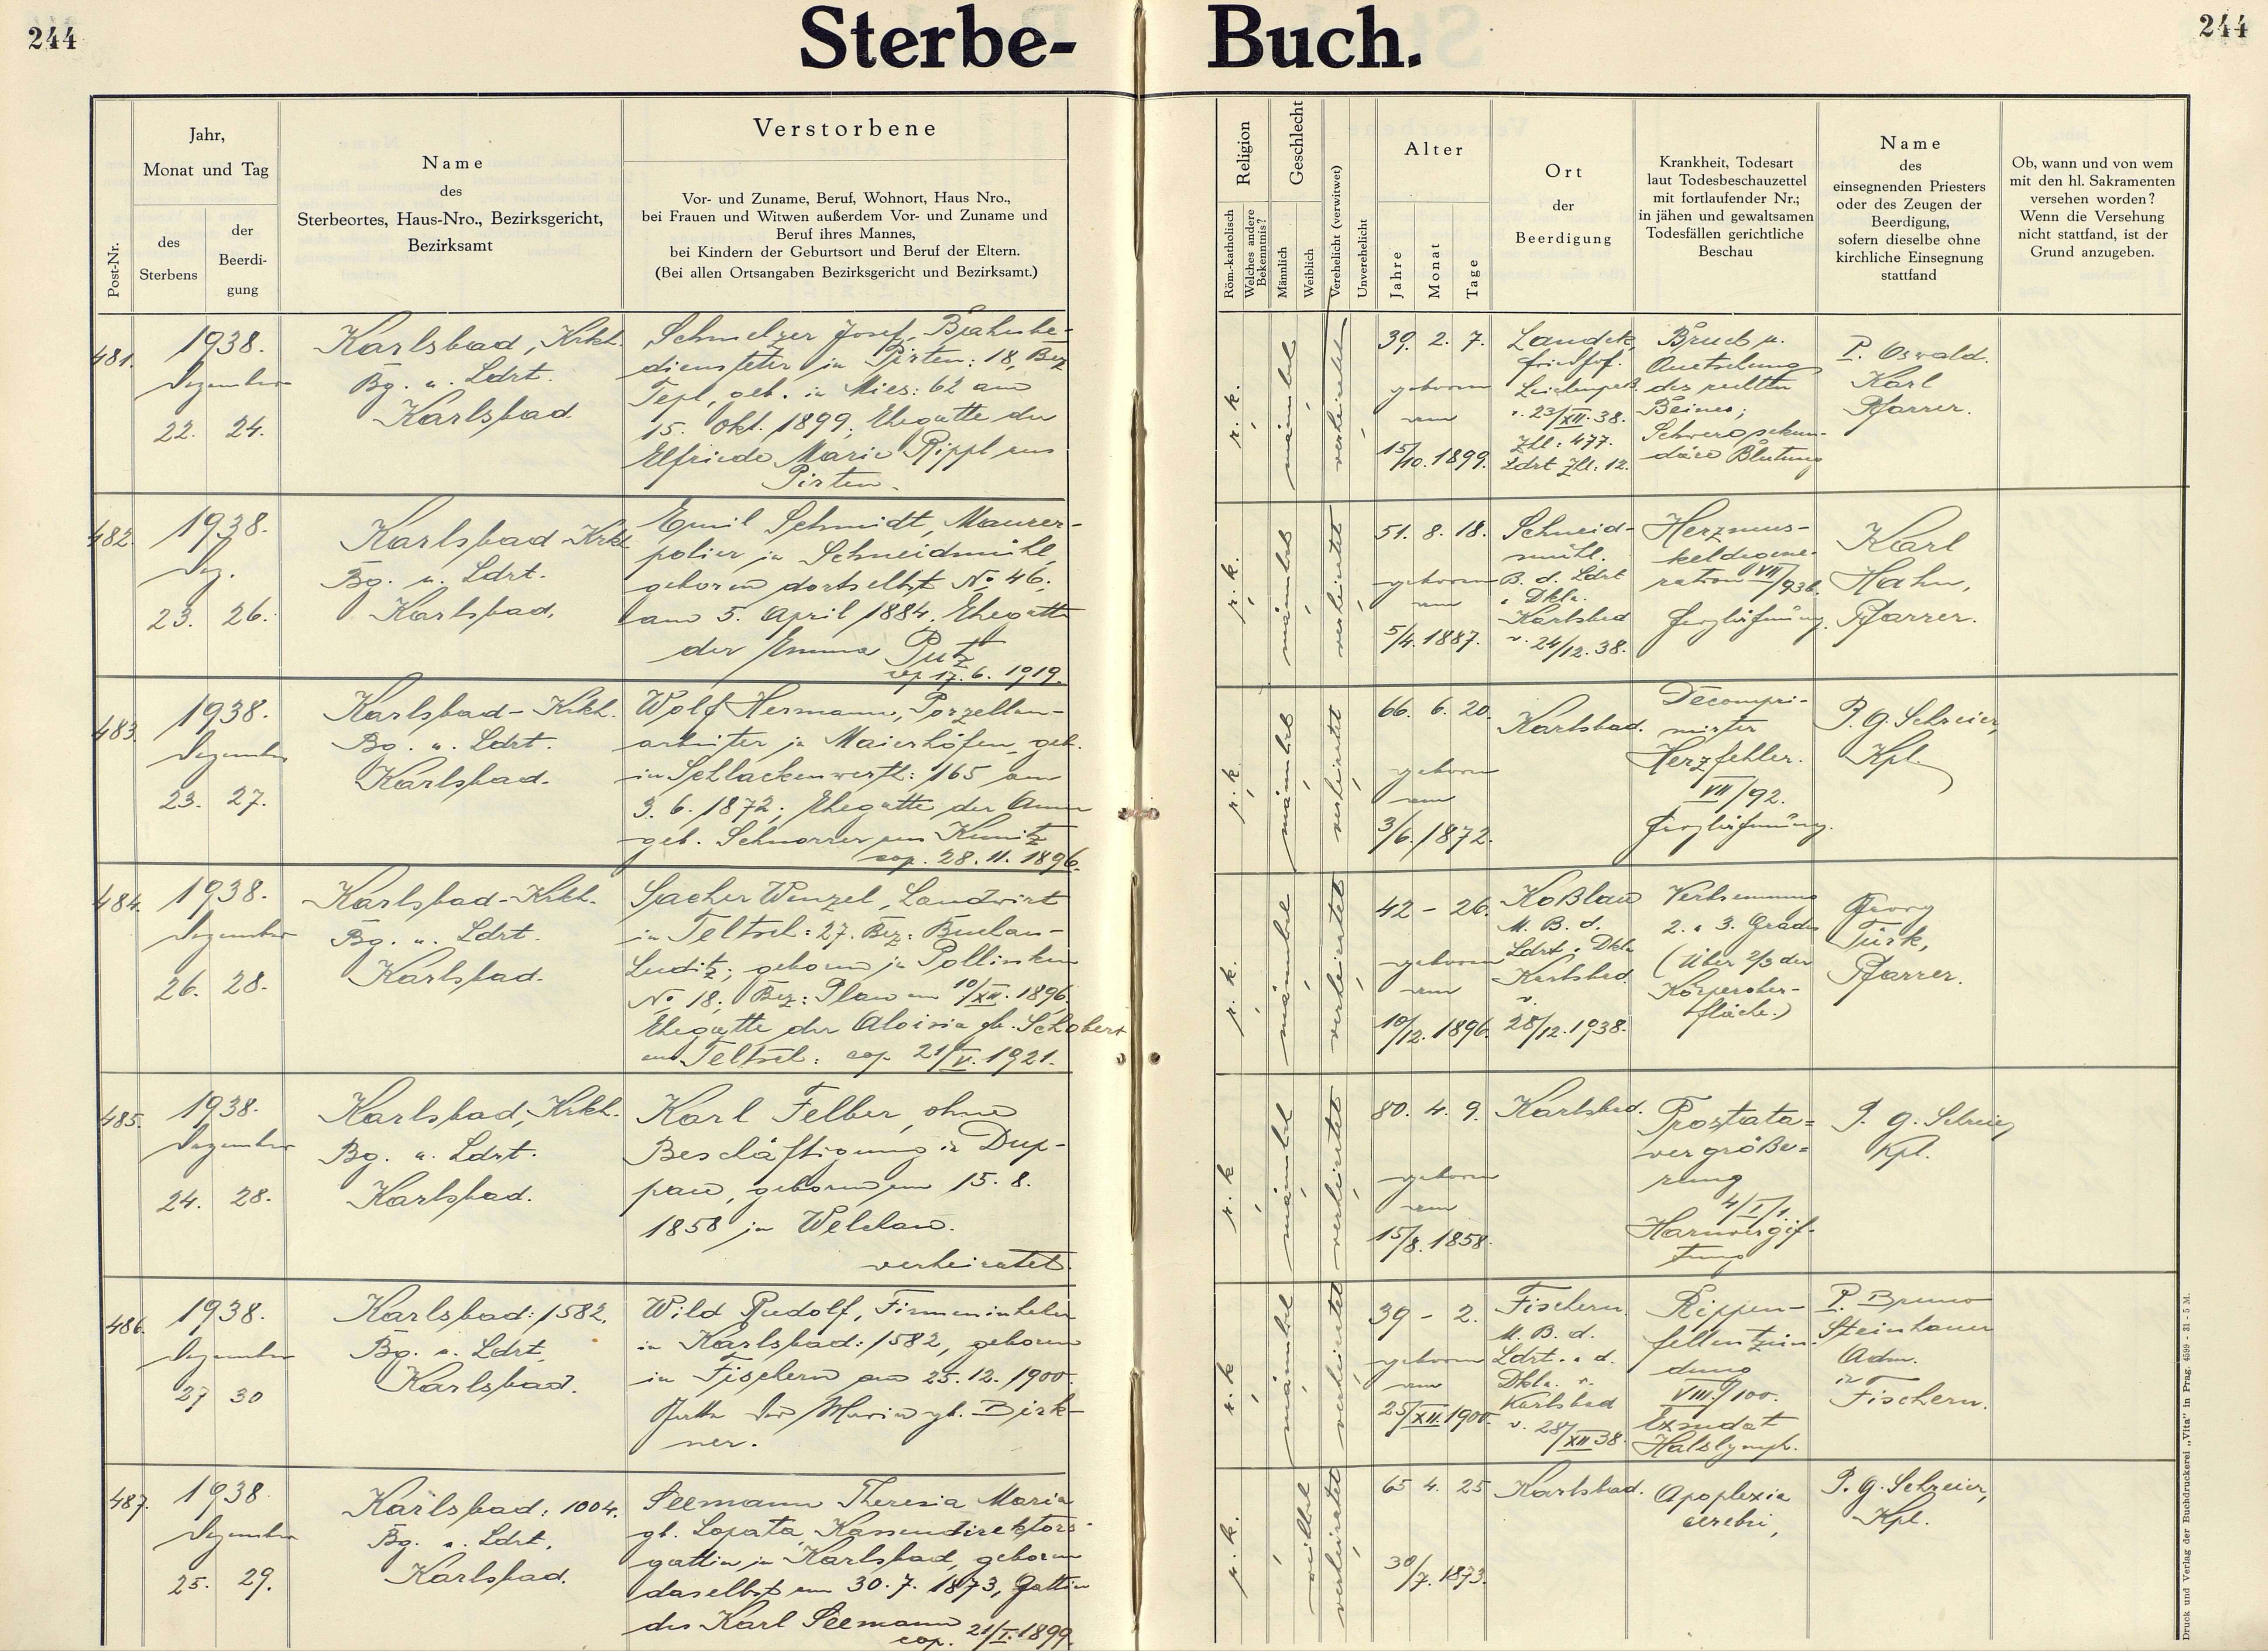 244
Sterbe-
Buch.
244
Post-Nr.
Jahr,
Monat und Tag
des
Sterbens
der
Beerdi-
gung
Name
des
Sterbeortes, Haus-Nro., Bezirksgericht,
Bezirksamt
Verstorbene
Vor- und Zuname, Beruf, Wohnort, Haus Nro.,
bei Frauen und Witwen außerdem Vor- und Zuname und
Beruf ihres Mannes,
bei Kindern der Geburtsort und Beruf der Eltern.
(Bei allen Ortsangaben Bezirksgericht und Bezirksamt.)
Religion
Röm.-katholisch
Welches andere
Bekenntnis?
Geschlecht
Männlich
Weiblich
Verehelicht (verwitwet)
Unverehelicht
Alter
Jahre
Monat
Tage
Ort
der
Beerdigung
Krankheit, Todesart
laut Todesbeschauzettel
mit fortlaufender Nr.;
in jähen und gewaltsamen
Todesfällen gerichtliche
Beschau
Name
des
einsegnenden Priesters
oder des Zeugen der
Beerdigung,
sofern dieselbe ohne
kirchliche Einsegnung
stattfand
Ob, wann und von wem
mit den hl. Sakramenten
versehen worden?
Wenn die Versehung
nicht stattfand, ist der
Grund anzugeben.
481.
1938.
Dezember
22. 24.
Karlsbad, Krkh.
Bg. u. Ldrt.
Karlsbad
Schmelzer Josef, Bahnbe-
diensteter in Pirten: 18, Bez
Tepl, geb. in Mies: 62 am
15. Okt. 1899; Ehegatte der
Elfriede Marie Rippl aus
Pirten.
r. k.
männlich
verheiratet
39. 2. 7.
geboren
am
15/10. 1899.
Landek,
Friedhof.
Leichenpaß
v. 23/XII. 38.
Zhl: 477.
Ldrt Zhl. 12.
Bruch u.
Quetschung
des rechten
Beines;
Schwere sekun-
däre Blutung
P. Oswald
Karl
Pfarrer.
482.
1938.
Dez.
23. 26.
Karlsbad-Krkh
Bg. u. Ldrt.
Karlsbad,
Emil Schmidt, Maurer-
polier in Schneidmühl,
geboren dortselbst No 46.
am 5. April 1884. Ehegatte
der Emma Putz
cop 17. 6. 1919.
r. k.
männlich
verheiratet
51. 8. 18.
geboren
am
5/4. 1887.
Schneid-
mühl.
B. d. Ldrt
Karlsbad
v. 24/12. 38.
Herzmus-
keldegene-
ration
Herzlähmung.
Karl
Hahn,
Pfarrer.
483.
1938.
Dezember
23. 27.
Karlsbad-Krkh.
Bg. u. Ldrt.
Karlsbad.
Wolf Hermann, Porzellan-
arbeiter in Maierhöfen, geb.
in Schlackenwerth: 165 am
3. 6. 1872; Ehegatte der Anna
geb. Schnorrer aus Kunitz
cop. 28. 11. 1896.
r. k
männlich
verheiratet
66. 6. 20.
geboren
am
3/6. 1872.
Karlsbad.
Decompri-
mirter
Herzfehler.
VII/92.
Herzlähmung.
P. G. Schreier,
Kpl.
484.
1938.
Dezember
26. 28.
Karlsbad-Krkh.
Bg. u. Ldrt.
Karlsbad.
Sacher Wenzel, Landwirt
in Teltsch: 27. Bez: Buchau-
Luditz; geboren in Pollinken
No 18; Bez: Plan am 10/XII. 1896.
Ehegatte der Aloisia gb. Schobert
aus Teltsch: cop. 21/V. 1921.
r. k.
männlich
verheiratet
42 - 26.
geboren
am
10/12. 1896.
Koßlau
M. B. d.
Ldrt. Dkla
Karlsbad
v.
28/12. 1938.
Verbrennung
2. u 3. Grades
(über 2/3 der
Körperober-
fläche.)
Georg
Türk,
Pfarrer.
485.
1938.
Dezember
24. 28.
Karlsbad, Krkh.
Bg. u. Ldrt.
Karlsbad.
Karl Felber, ohne
Beschäftigung in Dup-
pau, geboren am 15. 8.
1858 in Welchau.
verheiratet.
r. k
männlich
verheiratet
80. 4. 9.
geboren
am
15/8. 1858.
Karlsbad.
Prostata=
vergröße=
rung
4/I/1.
Harnvergif-
tung
P. G. Schreier,
Kpl.
486.
1938.
Dezember
27 30
Karlsbad: 1582,
Bg. u. Ldrt,
Karlsbad.
Wild Rudolf, Firmeninhaber
in Karlsbad: 1582, geboren
in Fischern am 25. 12. 1900.
Gatte der Maria gb. Birk-
ner.
r. k
männlich
verheiratet
39 - 2.
geboren
am
25/XII. 1900.
Fischern.
M. B. d.
Ldrt. u. d.
Dkla. v.
Karlsbad
v. 28/XII 38.
Rippen-
fellentzün-
dung
VIII./100.
Exsudat
Halslymph.
P. Bruno
Steinhauer
Adm.
in
Fischern.
487.
1938
Dezember
25. 29.
Karlsbad: 1004.
Bg. u. Ldrt,
Karlsbad.
Seemann Theresia Maria
gb. Lopata, Kassendirektors-
gattin in Karlsbad, geboren
daselbst am 30. 7. 1873, Gattin
des Karl Seemann
cop. 21/I. 1899.
r. k.
weiblich
verheiratet
65 4. 25
30/7. 1873.
Karlsbad.
Apoplexia
cerebri,
P. G. Schreier,
Kpl.
Druck und Verlag der Buchdruckerei „Vita" in Prag. 4599 - 31 - 5 M.